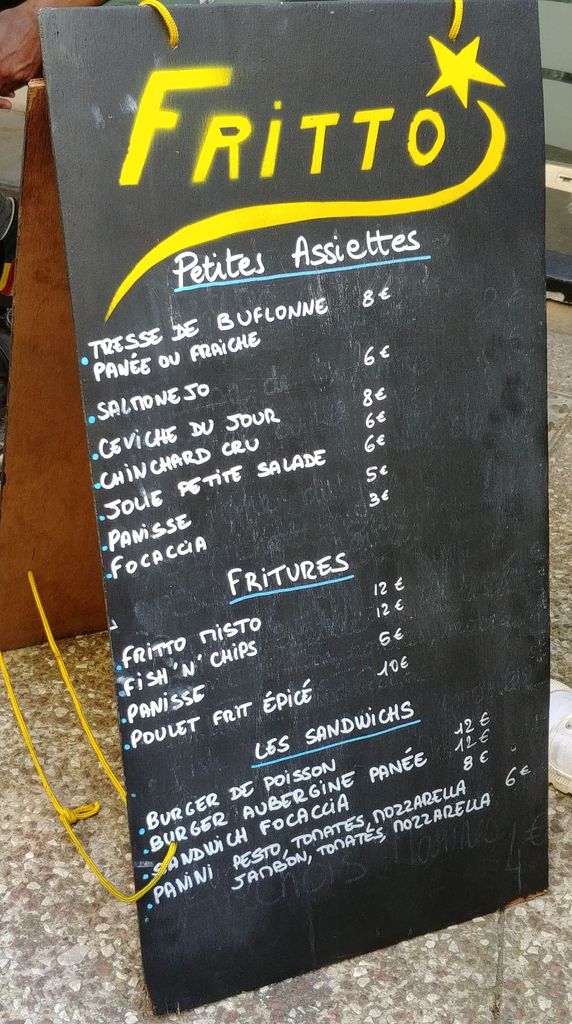 FRITTO
Petites Assiettes
• TRESSE DE BUFLONNE 8€
PANÉE OU FRAICHE
• SALMONEJO 6€
• CEVICHE DU JOUR 8€
• CHINCHARD CRU 6€
• JOLIE PETITE SALADE 6€
• PANISSE 5€
• FOCACCIA 3€
FRITURES
• FRITTO MISTO 12€
• FISH 'N' CHIPS 12€
• PANISSE 5€
• POULET FRIT ÉPICÉ 10€
LES SANDWICHS
• BURGER DE POISSON 12€
• BURGER AUBERGINE PANÉE 12€
• SANDWICH FOCACCIA 8€
• PANINI PESTO, TOMATES, MOZZARELLA 6€
JAMBON, TOMATES, MOZZARELLA